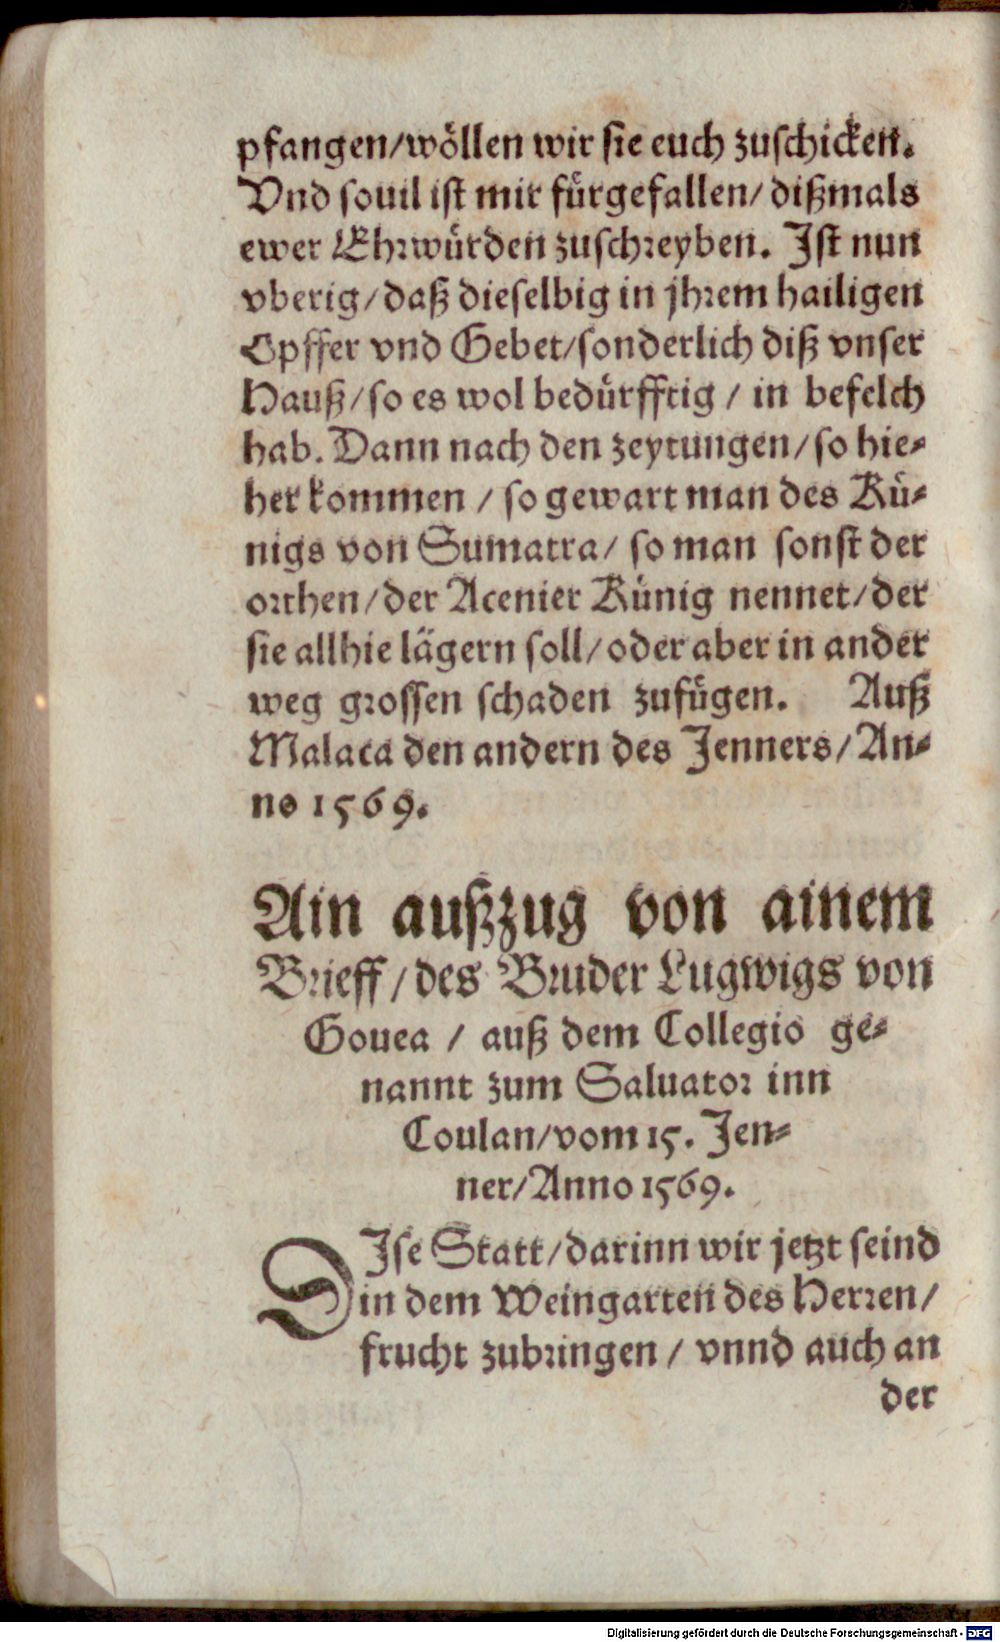 pfangen/wöllen wir sie euch zuschicken.
Vnd souil ist mir fürgefallen/ dißmals
ewer Ehrwürden zuschreyben. Ist nun
vberig/daß dieselbig in jhrem hailigen
Opffer vnd Gebet/sonderlich diß vnser
Hauß/so es wol bedürfftig / in befelch
hab. Dann nach den zeytungen/so hie-
her kommen / so gewart man des Kü-
nigs von Sumatra/ so man sonst der
orthen/der Acenier Künig nennet/der
sie allhie lägern soll/oder aber in ander
weg grossen schaden zufügen. Auß
Malaca den andern des Jenners/An-
no 1569.
Ain außzug von ainem
Brieff/des Bruder Lugwigs von
Gouea / auß dem Collegio ge-
nannt zum Saluator inn
Coulan/vom 15. Jen-
ner/Anno 1569.
DIse Statt/darinn wir jetzt seind
in dem Weingarten des Herren/
frucht zubringen / vnnd auch an
der
Digitalisierung gefördert durch die Deutsche Forschungsgemeinschaft - DFG